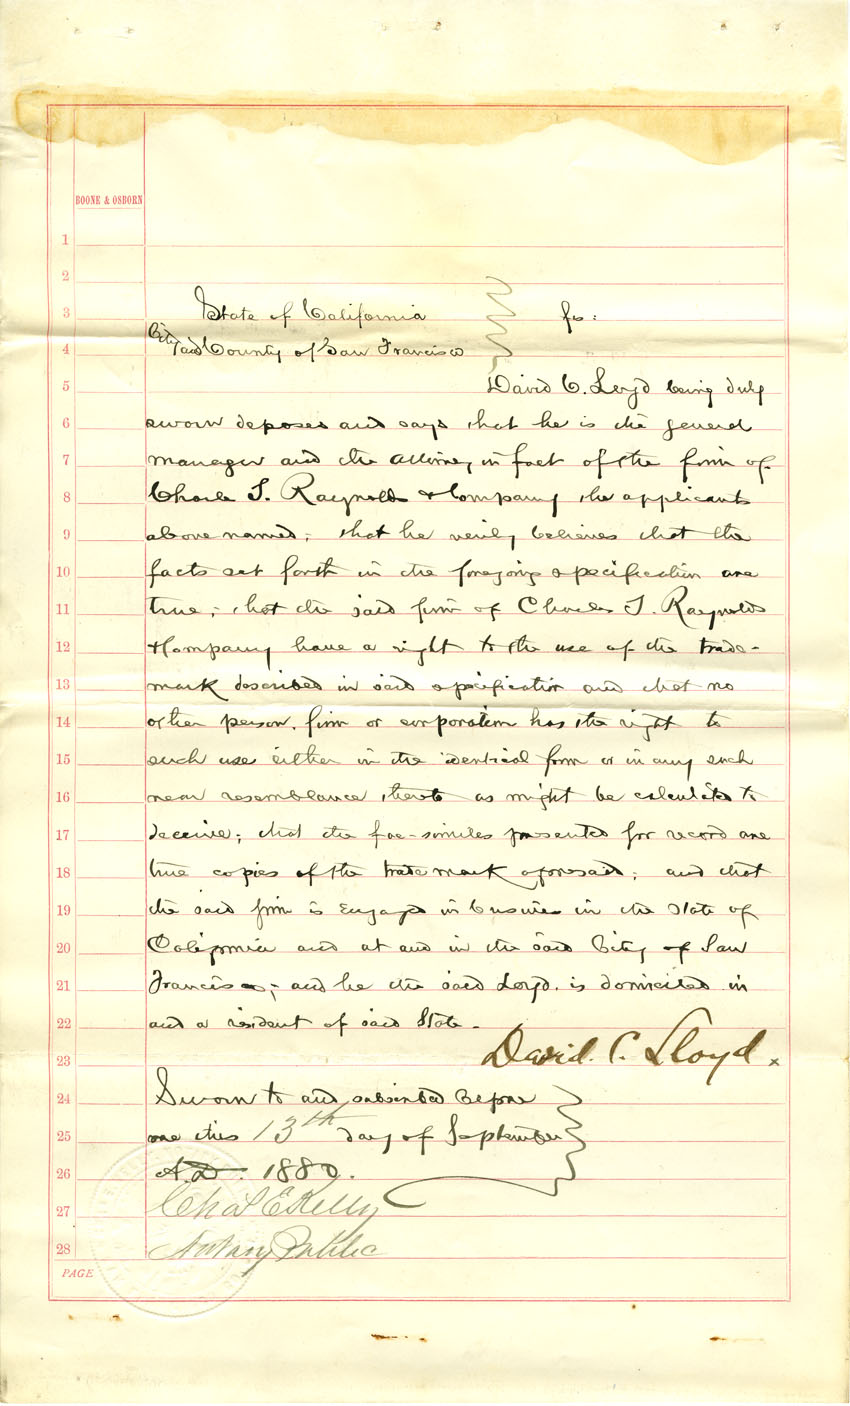 BOONE & OSBORN
1
2
3 State of California ss:
4 City and County of San Francisco
5 David C. Loyd being duly
6 sworn deposes and says that he is the general
7 manager and the attorney in fact of the firm of
8 Charles T. Raynolds & Company the applicants
9 above named; that he verily believes that the
10 facts set forth in the foregoing specification are
11 true; that the said firm of Charles T. Raynolds
12 & Company have a right to the use of the trade-
13 mark described in said specification and that no
14 other person, firm or corporation has the right to
15 such use either in the identical form or in any such
16 near resemblance thereto as might be calculated to
17 deceive; that the fac-similes presented for record are
18 true copies of the trade mark aforesaid; and that
19 the said firm is engaged in business in the State of
20 California and at and in the said City of San
21 Francisco; and he the said Loyd is domiciled in
22 and a resident of said State.
23 David. C. Lloyd. x
24 Sworn to and subscribed before
25 me this 13th day of September
26 A.D. 1880.
27 Chas E Kelly
28 Notary Public
PAGE